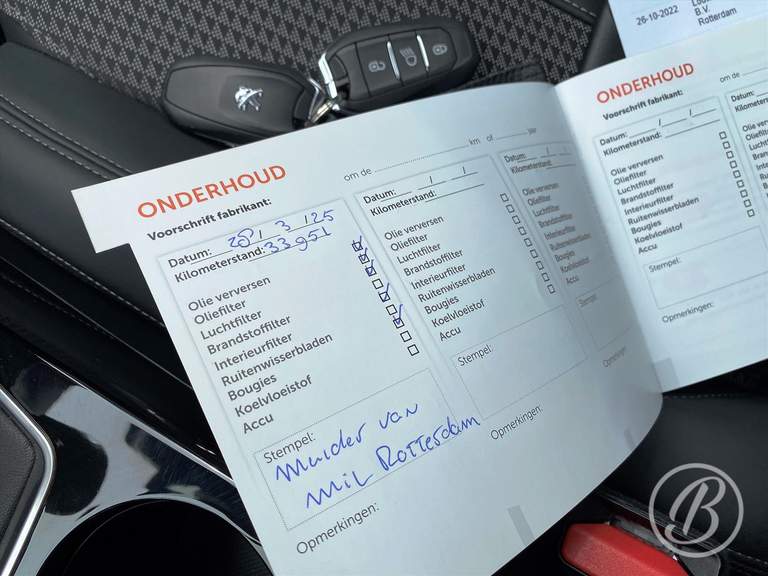 ONDERHOUD
Voorschrift fabrikant:
om de .................... km of ........ jaar
Datum: 28 / 3 / 25
Kilometerstand: 33951
Olie verversen
Oliefilter
Luchtfilter
Brandstoffilter
Interieurfilter
Ruitenwisserbladen
Bougies
Koelvloeistof
Accu
Stempel:
Mulder van
Mil Rotterdam
Opmerkingen:
Datum: / /
Kilometerstand:
Olie verversen
Oliefilter
Luchtfilter
Brandstoffilter
Interieurfilter
Ruitenwisserbladen
Bougies
Koelvloeistof
Accu
Stempel:
Opmerkingen:
Datum: / /
Kilometerstand:
Olie verversen
Oliefilter
Luchtfilter
Brandstoffilter
Interieurfilter
Ruitenwisserbladen
Bougies
Koelvloeistof
Accu
Stempel:
Opmerkingen:
26-10-2022
B.V.
Rotterdam
ONDERHOUD
Voorschrift fabrikant:
om de
Datum: / /
Kilometerstand:
Olie verversen
Oliefilter
Luchtfilter
Brandstoffilter
Interieurfilter
Ruitenwisserbladen
Bougies
Koelvloeistof
Accu
Stempel:
Opmerkingen:
B